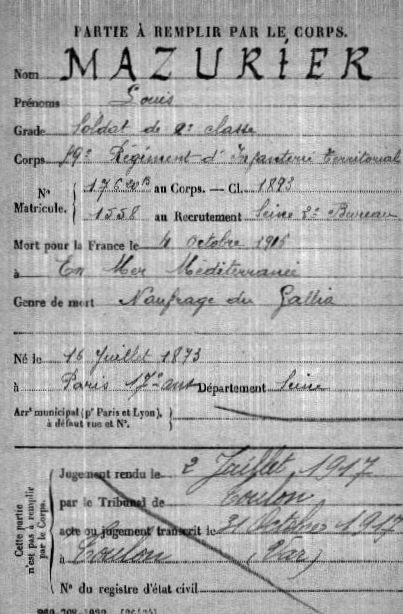 PARTIE À REMPLIR PAR LE CORPS.
Nom MAZURIER
Prénoms Louis
Grade Soldat de 2e classe
Corps 59e Régiment d'Infanterie Territorial
Nº Matricule. 17620 bis au Corps. — Cl. 1893
1558 au Recrutement Seine 2e Bureau
Mort pour la France le 4 octobre 1916
à En Mer Méditerranée
Genre de mort Naufrage du Gallia
Né le 16 Juillet 1873
à Paris 17e arrt Département Seine
Arrt municipal (pr Paris et Lyon), à défaut rue et Nº.
Cette partie n'est pas à remplir par le Corps.
Jugement rendu le 2 Juillet 1917
par le Tribunal de Toulon
acte ou jugement transcrit le 31 Octobre 1917
à Toulon (Var)
Nº du registre d'état civil